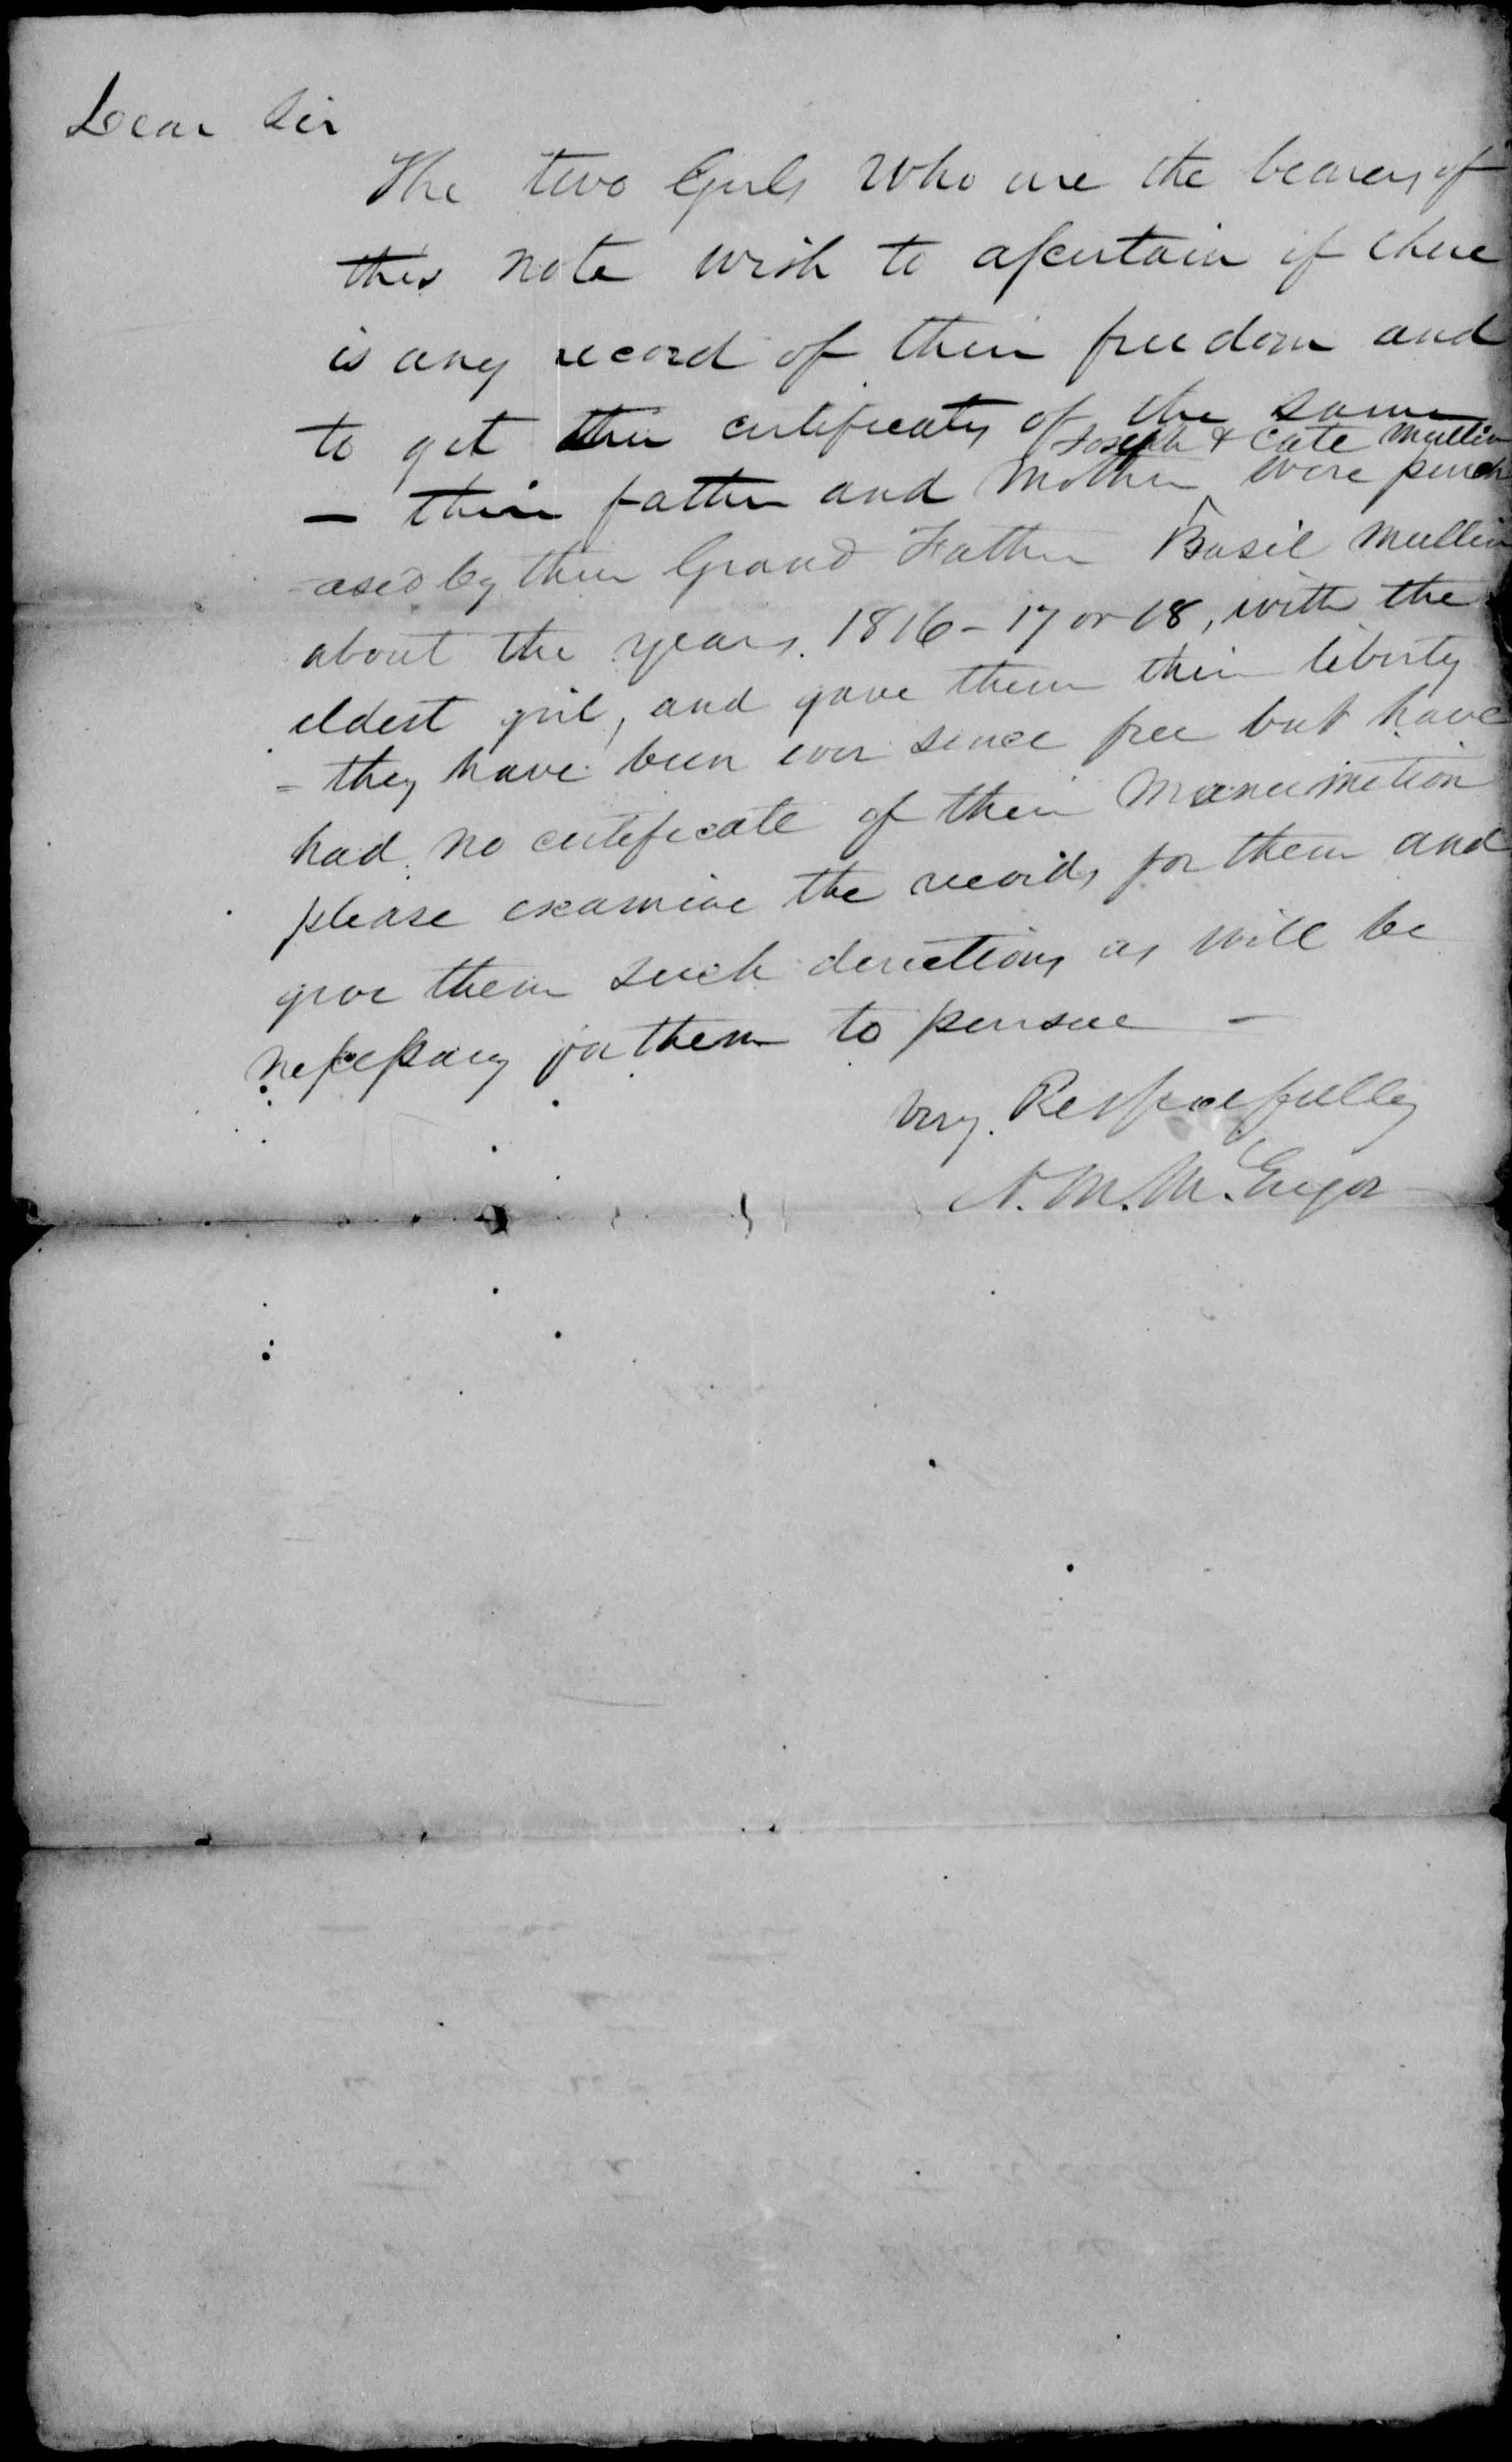 Dear Sir
The two Girls who are the bearers of
this note wish to ascertain if there
is any record of their freedom and
to get their certificates of the same
Joseph & Cate Mullin
— their father and Mother ^ were purch
-ased by their Grand Father Basil Mullin
about the years. 1816-17 or 18, with the
eldest girl, and gave them their liberty
= they have been ever since free but have
had no certificate of their Manumition
please examine the records for them and
give them such directions as will be
nessessary for them to persue —
Very. Respecfully
N. M. McGregor